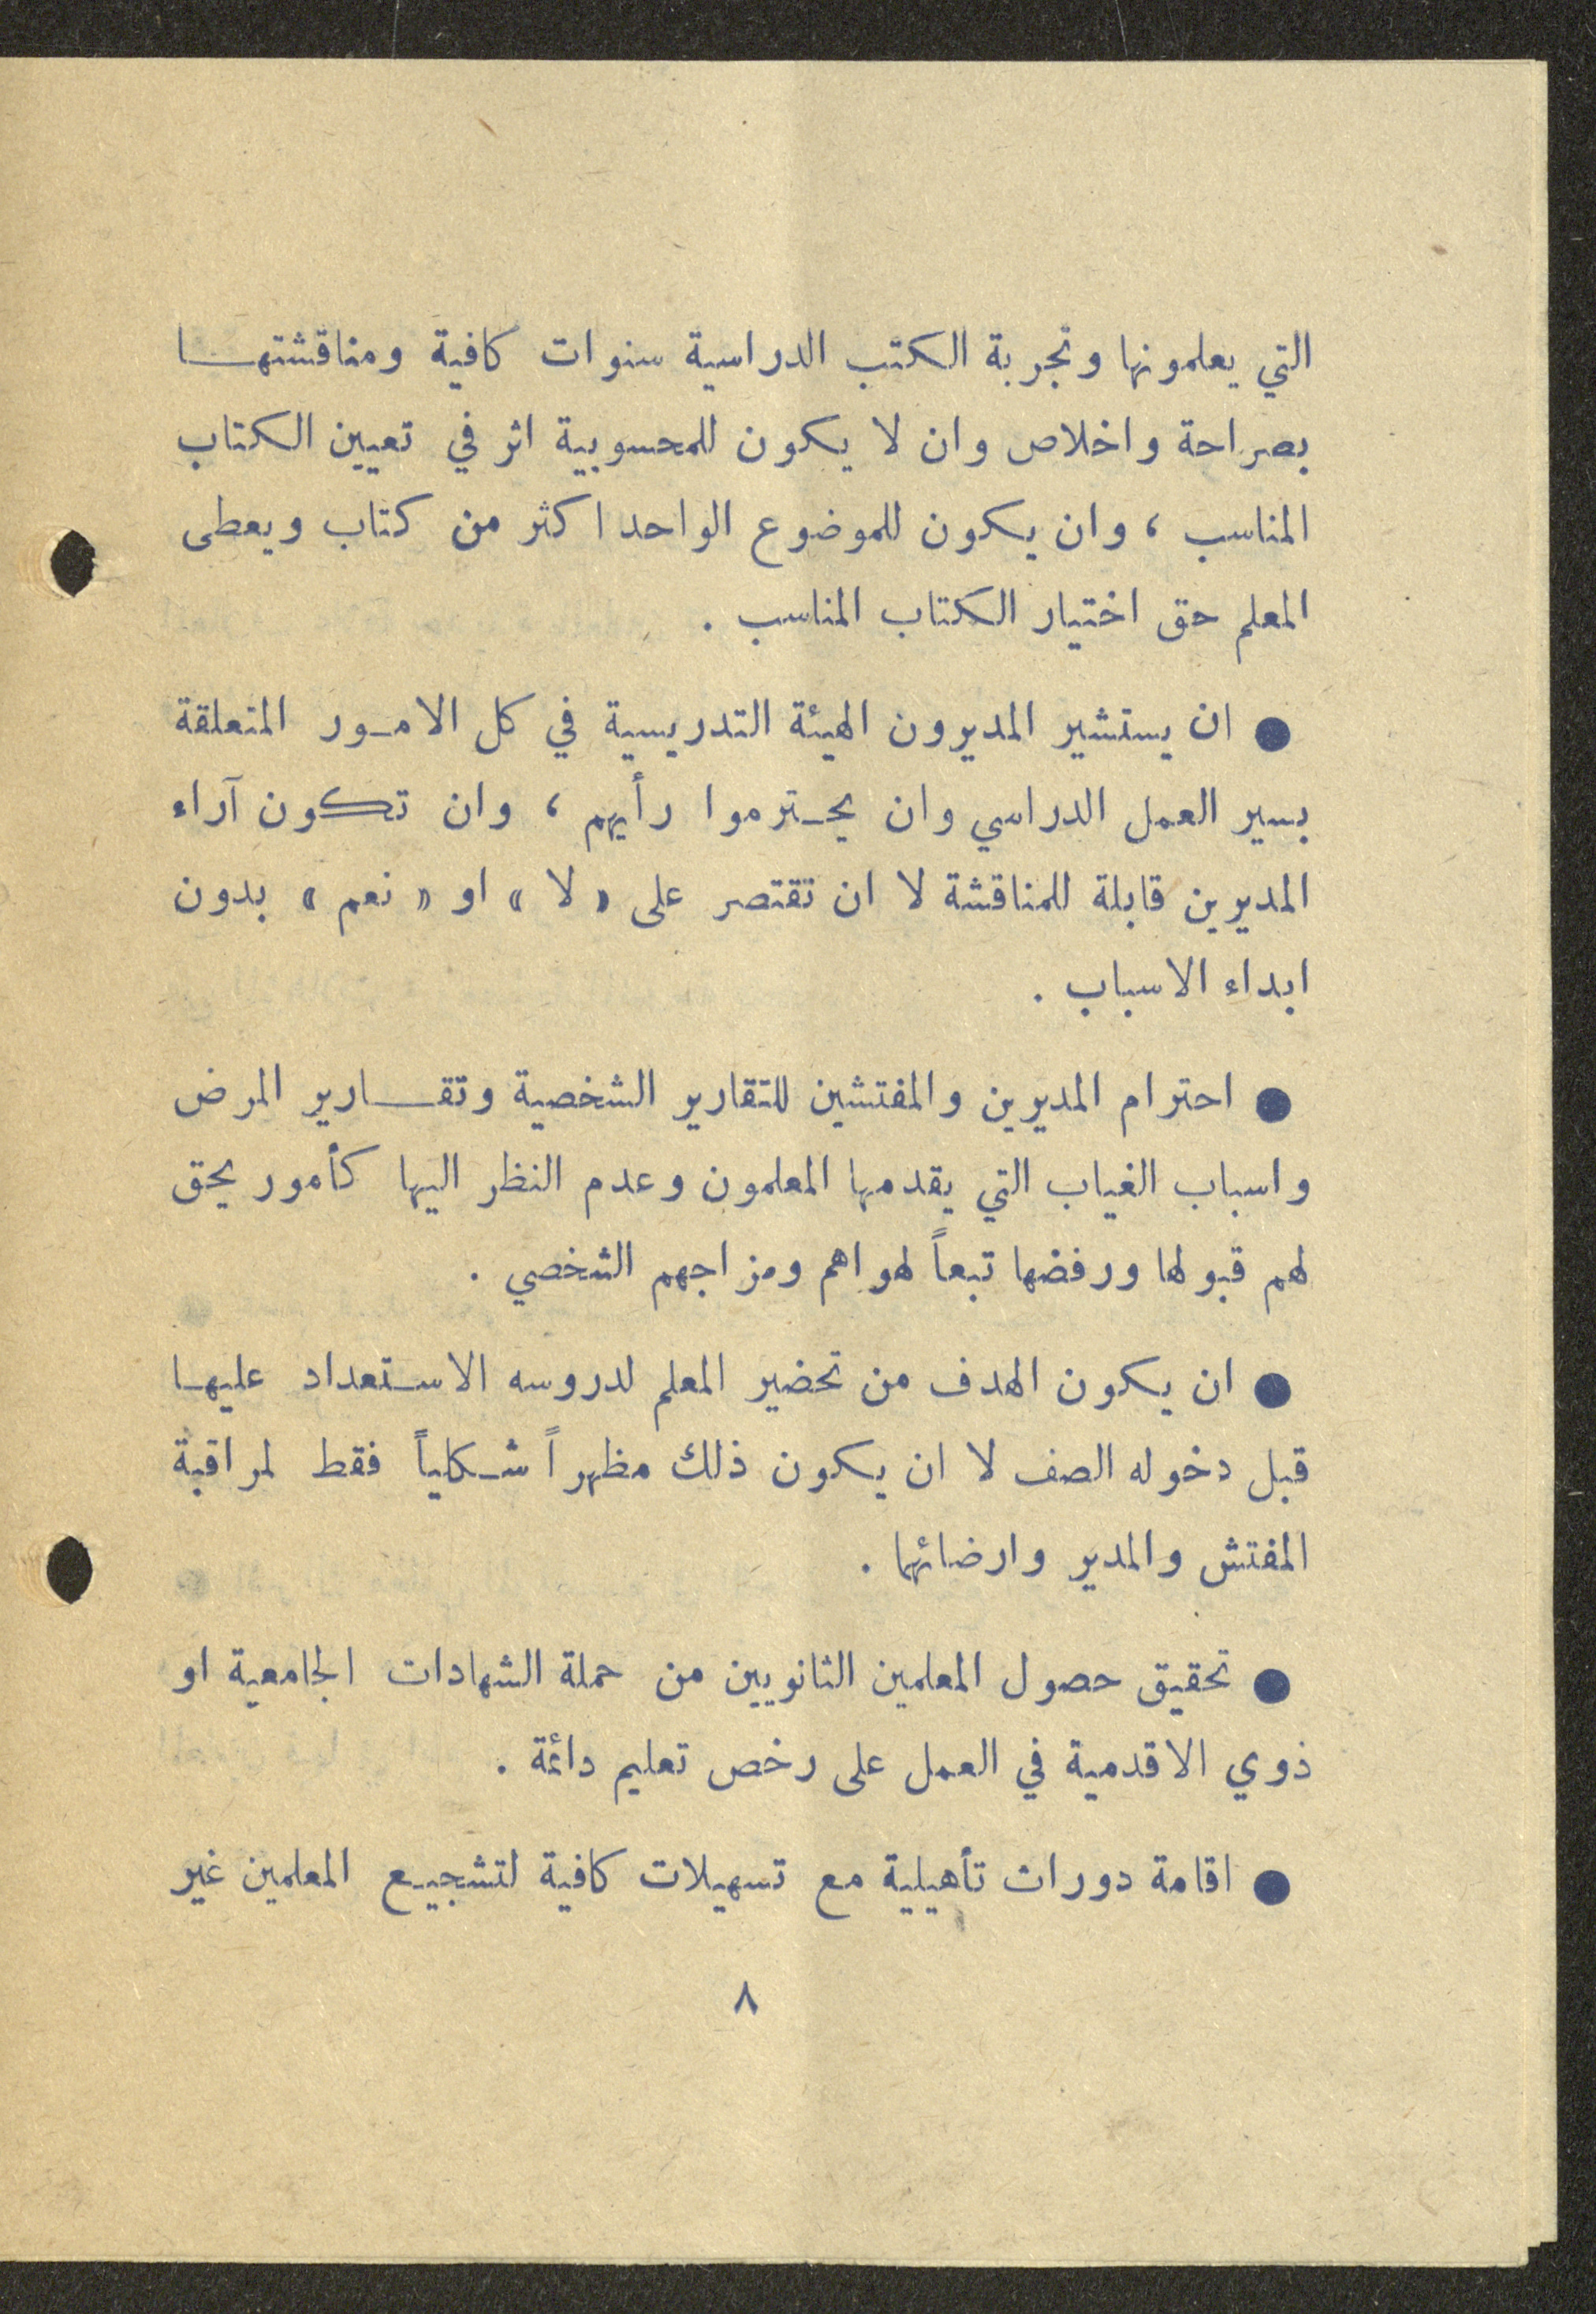 التي يعلمونها وتجربة الكتب الدراسية سنوات كافية ومناقشتها
بصراحة واخلاص وان لا يكون للمحسوبية اثر في تعيين الكتاب
المناسب ، وان يكون للموضوع الواحد اكثر من كتاب ويعطى
المعلم حق اختيار الكتاب المناسب .
● ان يستشير المديرون الهيئة التدريسية في كل الامور المتعلقة
بسير العمل الدراسي وان يحترموا رأيهم ، وان تكون آراء
المديرين قابلة للمناقشة لا ان تقتصر على « لا » او « نعم » بدون
ابداء الاسباب .
● احترام المديرين والمفتشين للتقارير الشخصية وتقارير المرض
واسباب الغياب التي يقدمها المعلمون وعدم النظر اليها كأمور يحق
لهم قبولها ورفضها تبعاً لهواهم ومزاجهم الشخصي .
● ان يكون الهدف من تحضير المعلم لدروسه الاستعداد عليها
قبل دخوله الصف لا ان يكون ذلك مظهراً شكلياً فقط لمراقبة
المفتش والمدير وارضائهما .
● تحقيق حصول المعلمين الثانويين من حملة الشهادات الجامعية او
ذوي الاقدمية في العمل على رخص تعليم دائمة .
● اقامة دورات تأهيلية مع تسهيلات كافية لتشجيع المعلمين غير
٨